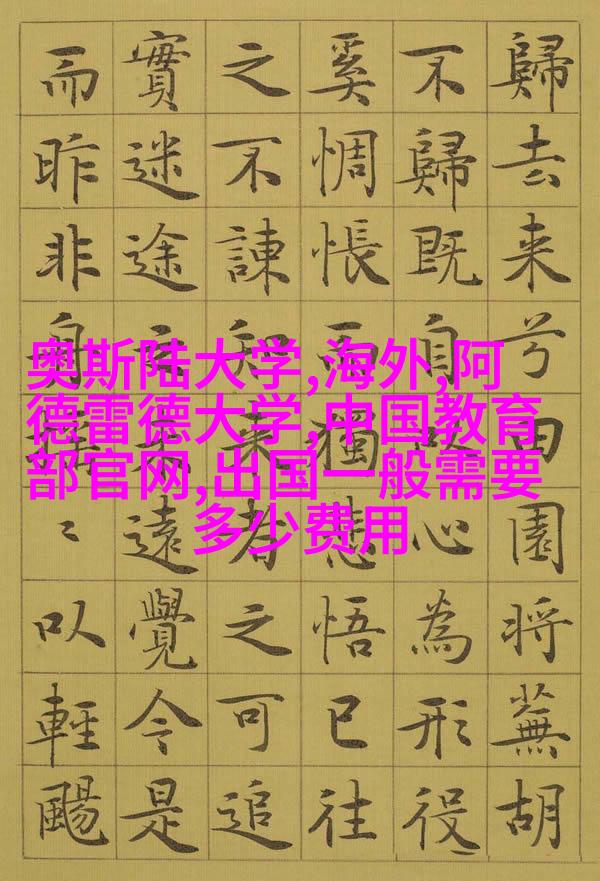 歸去来兮田園将蕪胡
不歸既自以心為形役
奚惆悵而獨悲悟已往
之不諫知来者之可追
實迷途其未遠覺今是
而昨非舟搖〻以輕颺
奥斯陆大学,海外,阿
德雷德大学,中国教育
部官网,出国一般需要
多少费用